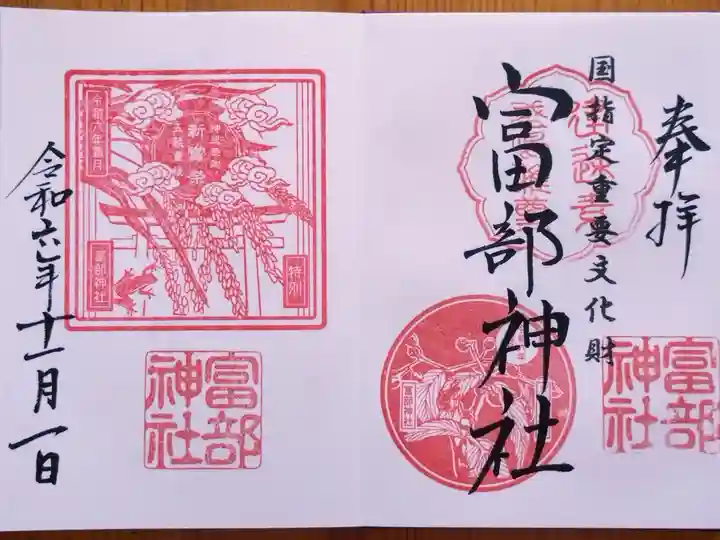 奉拝
国指定重要文化財
富部神社
富部
神社
富部神社
令和六年霜月
新嘗祭
五穀豊穣
特別
富部神社
富部
神社
令和六年十一月一日